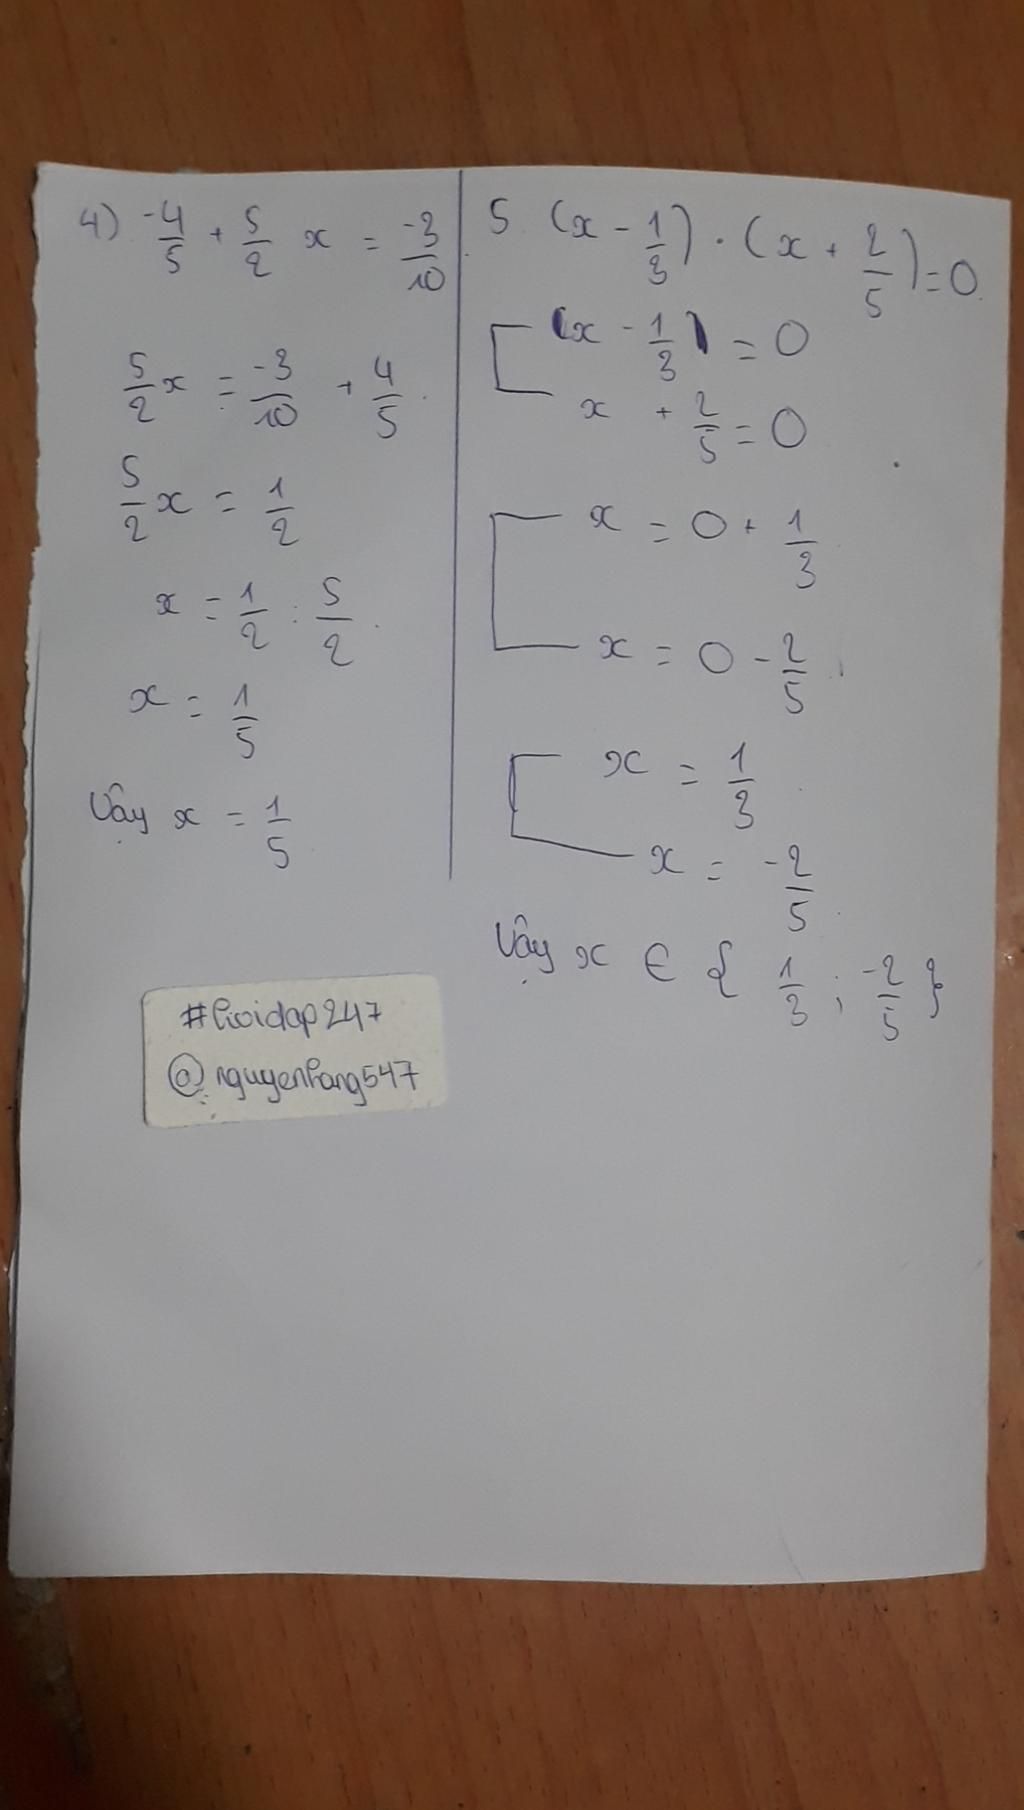 4) -4/5 + 5/2 x = -3/10
5/2 x = -3/10 + 4/5
5/2 x = 1/2
x = 1/2 : 5/2
x = 1/5
Vậy x = 1/5
5. (x - 1/3) . (x + 2/5) = 0
(x - 1/3) = 0
x + 2/5 = 0
x = 0 + 1/3
x = 0 - 2/5
x = 1/3
x = -2/5
Vậy x ∈ { 1/3 ; -2/5 }
#hoidap247
@nguyenhang547